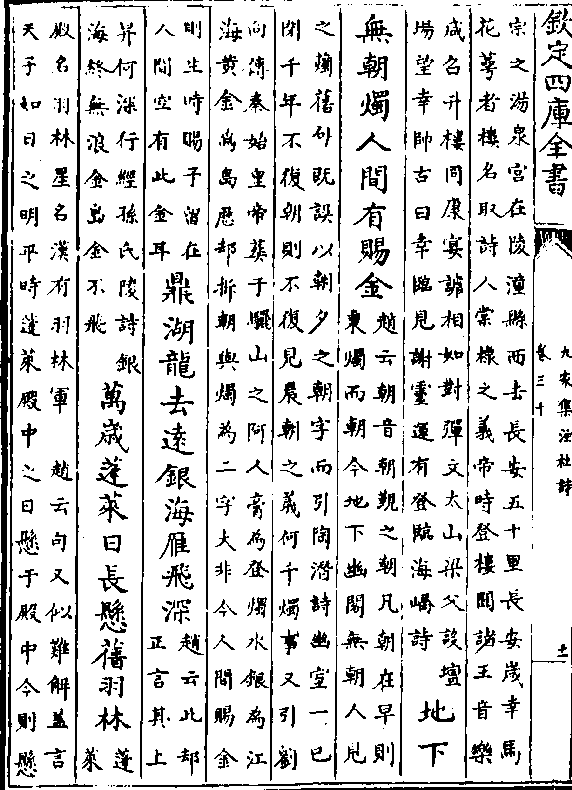 欽定四庫全書
九家集注杜詩
卷三十
十一
宗之湯泉宮在陵潼縣西去長安五十里長安歲幸焉
花萼者樓名取詩人棠棣之義帝時登樓聞諸王音樂
咸召升樓同康宴謔相如對彈文太山梁父設壇
場望幸師古曰幸臨見謝靈運有登臨海嶠詩
地下
無朝燭人間有賜金
趙云朝音朝覲之朝凡朝在早則
東燭而朝今地下幽閟無朝人見
之燭舊引既誤以朝夕之朝字而引陶潛詩幽室一已
閉千年不復朝則不復見晨朝之義何千燭事又引劉
向傳秦始皇帝葬于驪山之阿人膏為登燭水銀為江
海黃金為島歷却折朝與燭為二字大非今人間賜金
則生時賜予留在
人間空有此金耳
鼎湖龍去遠銀海雁飛深
趙云此却
正言其上
昇何深行經孫氏陵詩銀
海終無浪金島金不飛
萬歲蓬萊日長懸舊羽林
蓬
萊
殿名羽林星名漢有羽林軍 趙云句又似難解蓋言
天子如日之明平時蓬萊殿中之日懸于殿中今則懸